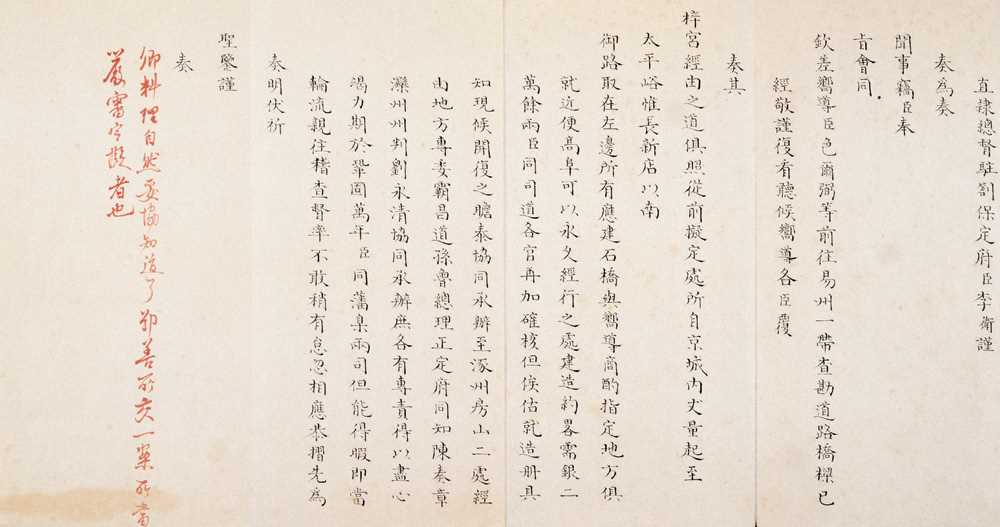 直隸總督駐劄保定府臣李衛謹
奏為奏
聞事竊臣奉
旨會同
欽差嚮導臣邑爾弼等前往易州一帶查勘道路橋樑已
經敬謹復看聽候嚮導各臣覆
奏其
梓宮經由之道俱照從前擬定處所自京城內丈量起至
太平峪惟長新店以南
御路取在左邊所有應建石橋與嚮導商酌指定地方俱
就近便高阜可以永久經行之處建造約畧需銀二
萬餘兩臣同司道各官再加確核但俟估就造册具
知現候開復之瞻泰協同承辦至涿州房山二處經
由地方專委霸昌道孫魯總理正定府同知陳奏章
灤州州判劉永清協同承辦庶各有專責得以盡心
竭力期於鞏固萬年臣同藩臬兩司但能得暇即當
輪流親往稽查督率不敢稍有怠忽相應恭摺先為
奏明伏祈
聖鑒謹
奏
卿料理自然妥協知道了 善所交一案所當
嚴審定擬者也